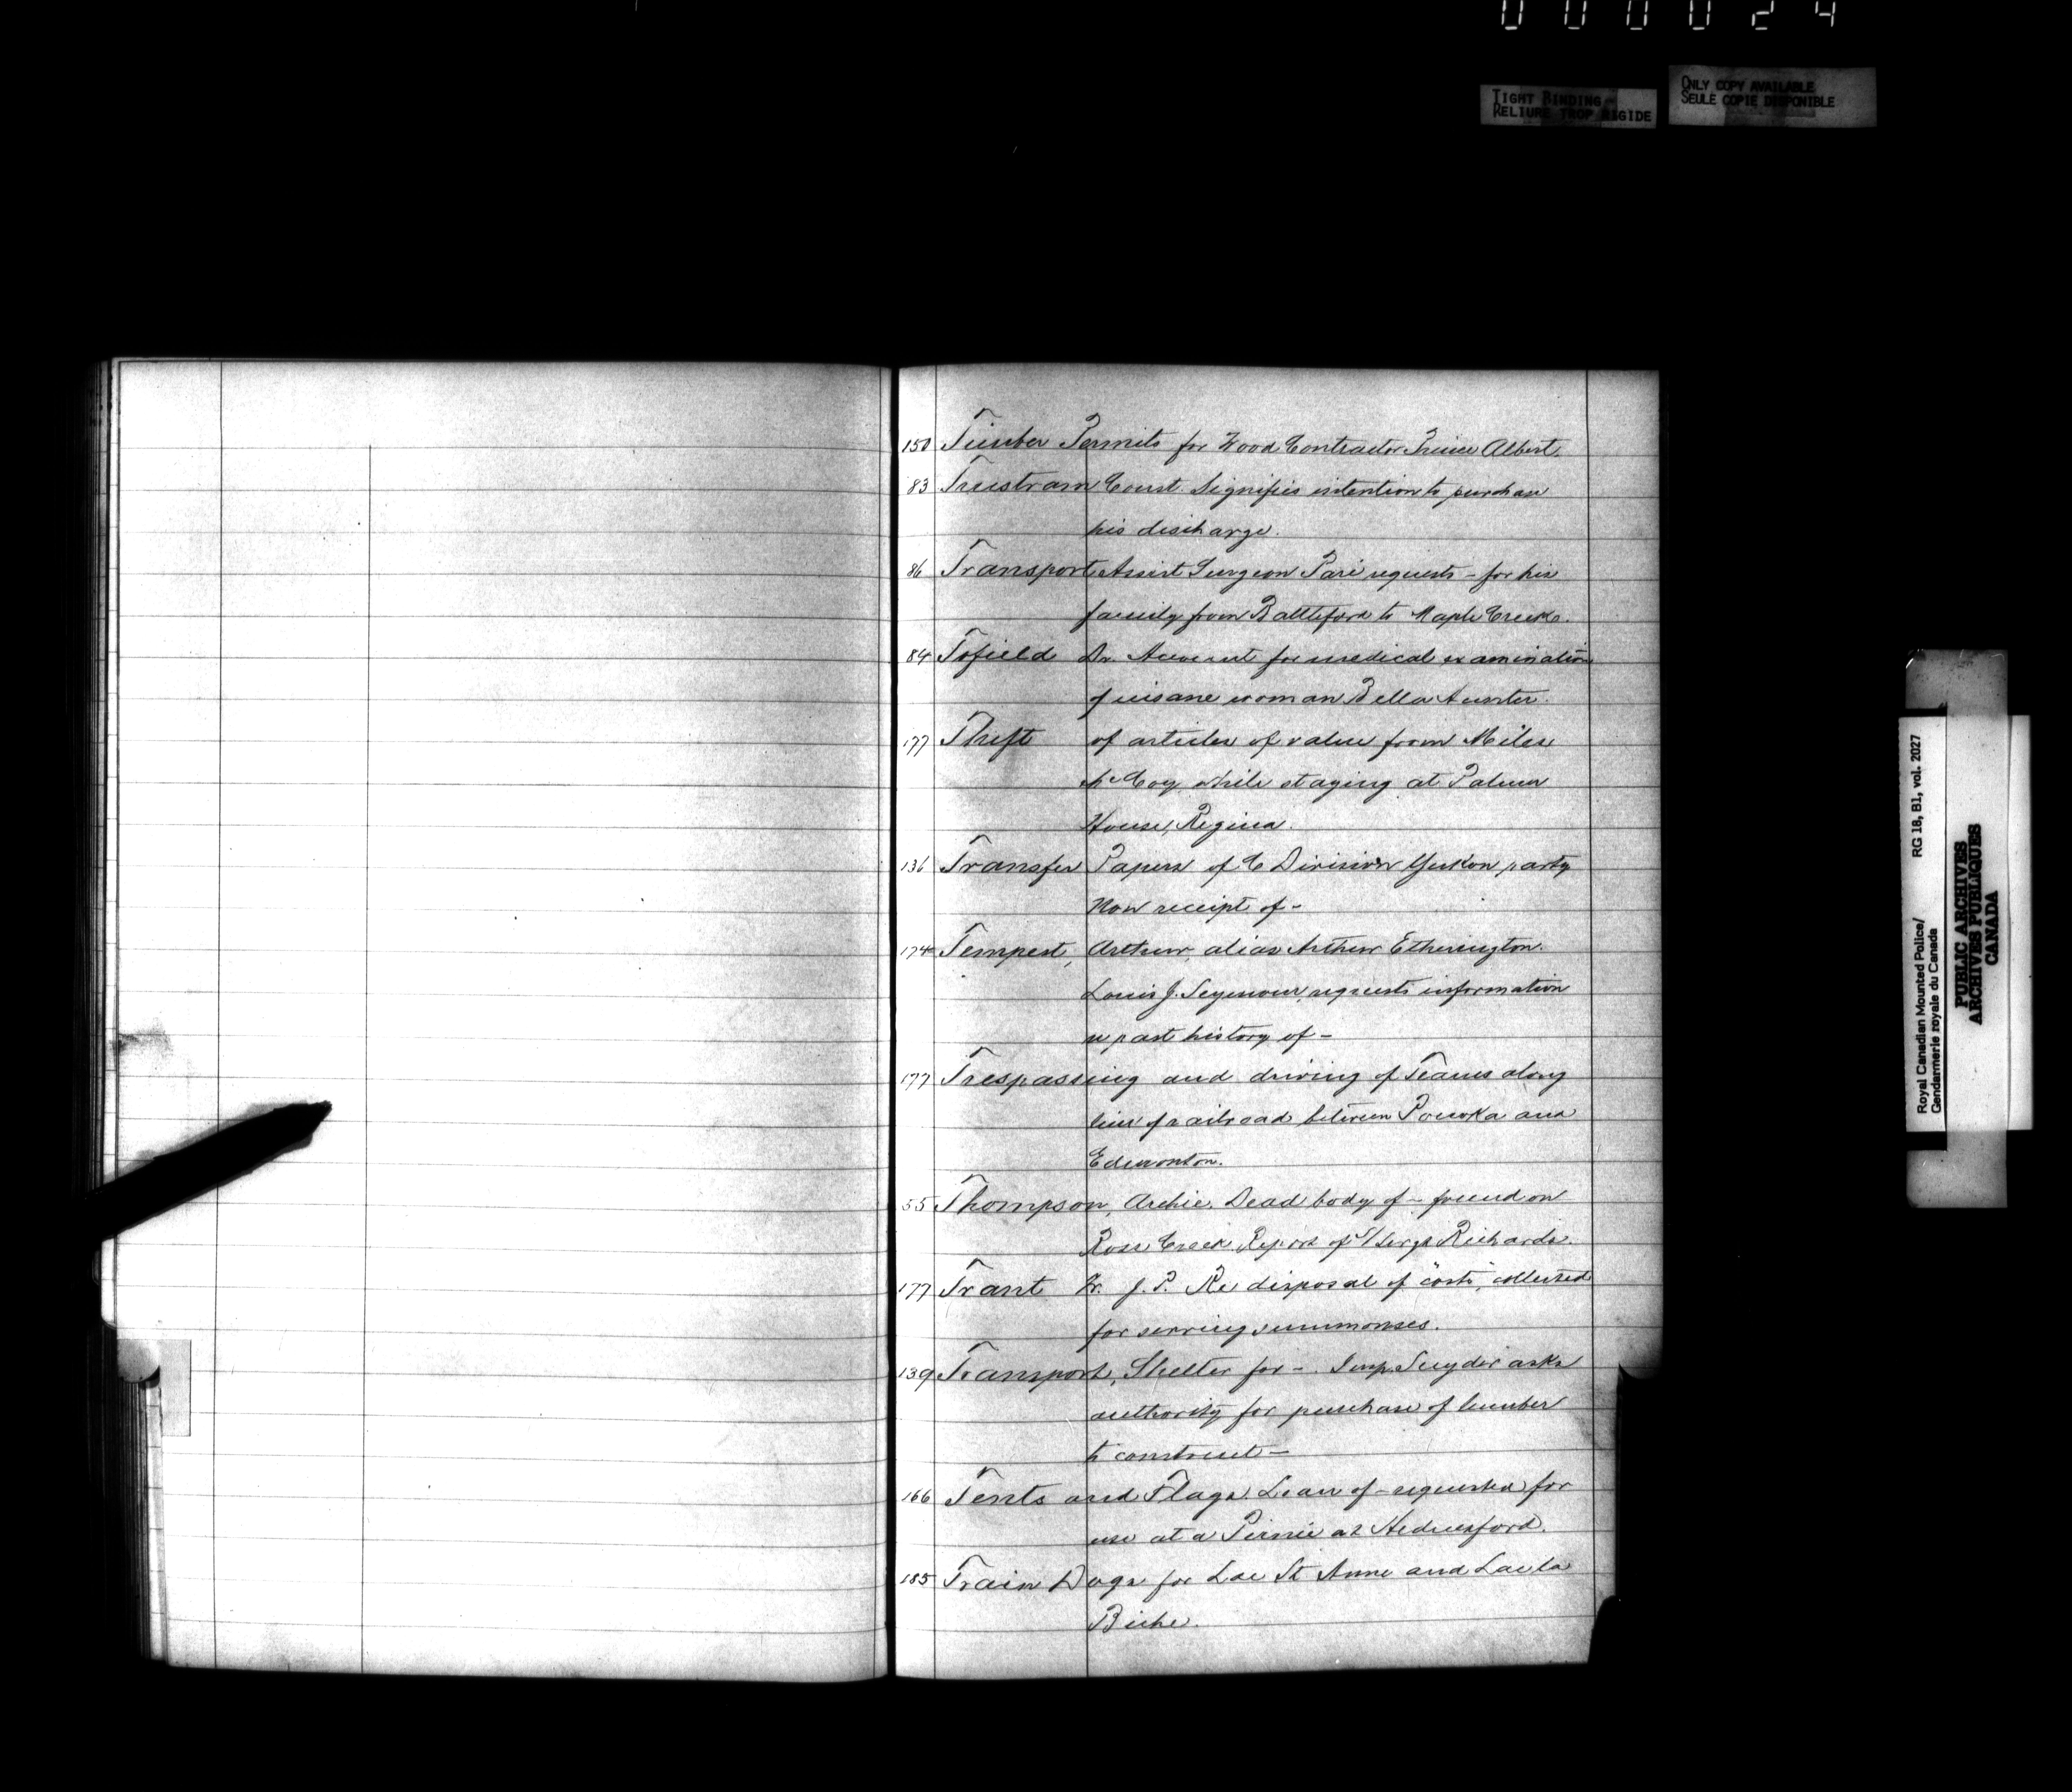 000024
TIGHT BINDING
RELIURE TROP RIGIDE
ONLY COPY AVAILABLE
SEULE COPIE DISPONIBLE
150 Timber Permits for Wood Contractor Prince Albert.
83 Trustram Const. Signifies intention to purchase
his discharge.
86 Transport Assist Surgeon Paré requests - for his
family from Battleford to Maple Creek.
84 Tofield Dr. Account for medical examination
of insane woman Bella Hunter.
177 Theft of articles of value from Miles
McCoy while staying at Palmer
House, Regina.
136 Transfer Papers of C Division Yukon party
Non receipt of -
174 Tempest, Arthur, alias Arthur Etherington.
Louis J. Seymour, requests information
re past history of -
177 Trespassing and driving of Teams along
line of railroad between Ponoka and
Edmonton.
55 Thompson, Archie. Dead body of - found on
Rose Creek. Report of S/Sergt Richards.
177 Trant W. J.P. Re disposal of "costs", collected
for serving summonses.
139 Transport, Shelter for -. Insp. Snyder asks
authority for purchase of lumber
to construct -
166 Tents and Flags. Loan of - requested for
use at a Picnic at Hednesford.
185 Train Dogs for Lac St Anne and Lac la
Biche.
Royal Canadian Mounted Police/ RG 18, B1, vol. 2027
Gendarmerie royale du Canada
PUBLIC ARCHIVES
ARCHIVES PUBLIQUES
CANADA